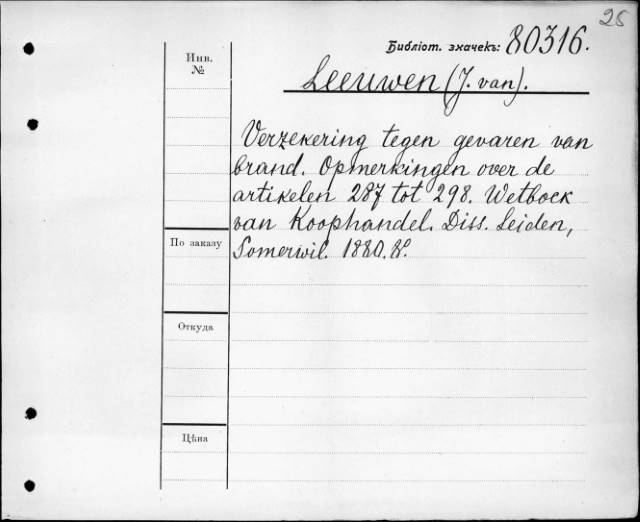 25
Библіот. значекъ: 80316.
Инв.
№
Leeuwen (J. van).
Verzekering tegen gevaren van
brand. Opmerkingen over de
artikelen 287 tot 298. Wetboek
van Koophandel. Diss. Leiden,
Somerwil. 1880. 8.
По заказу
Откуда
Цѣна